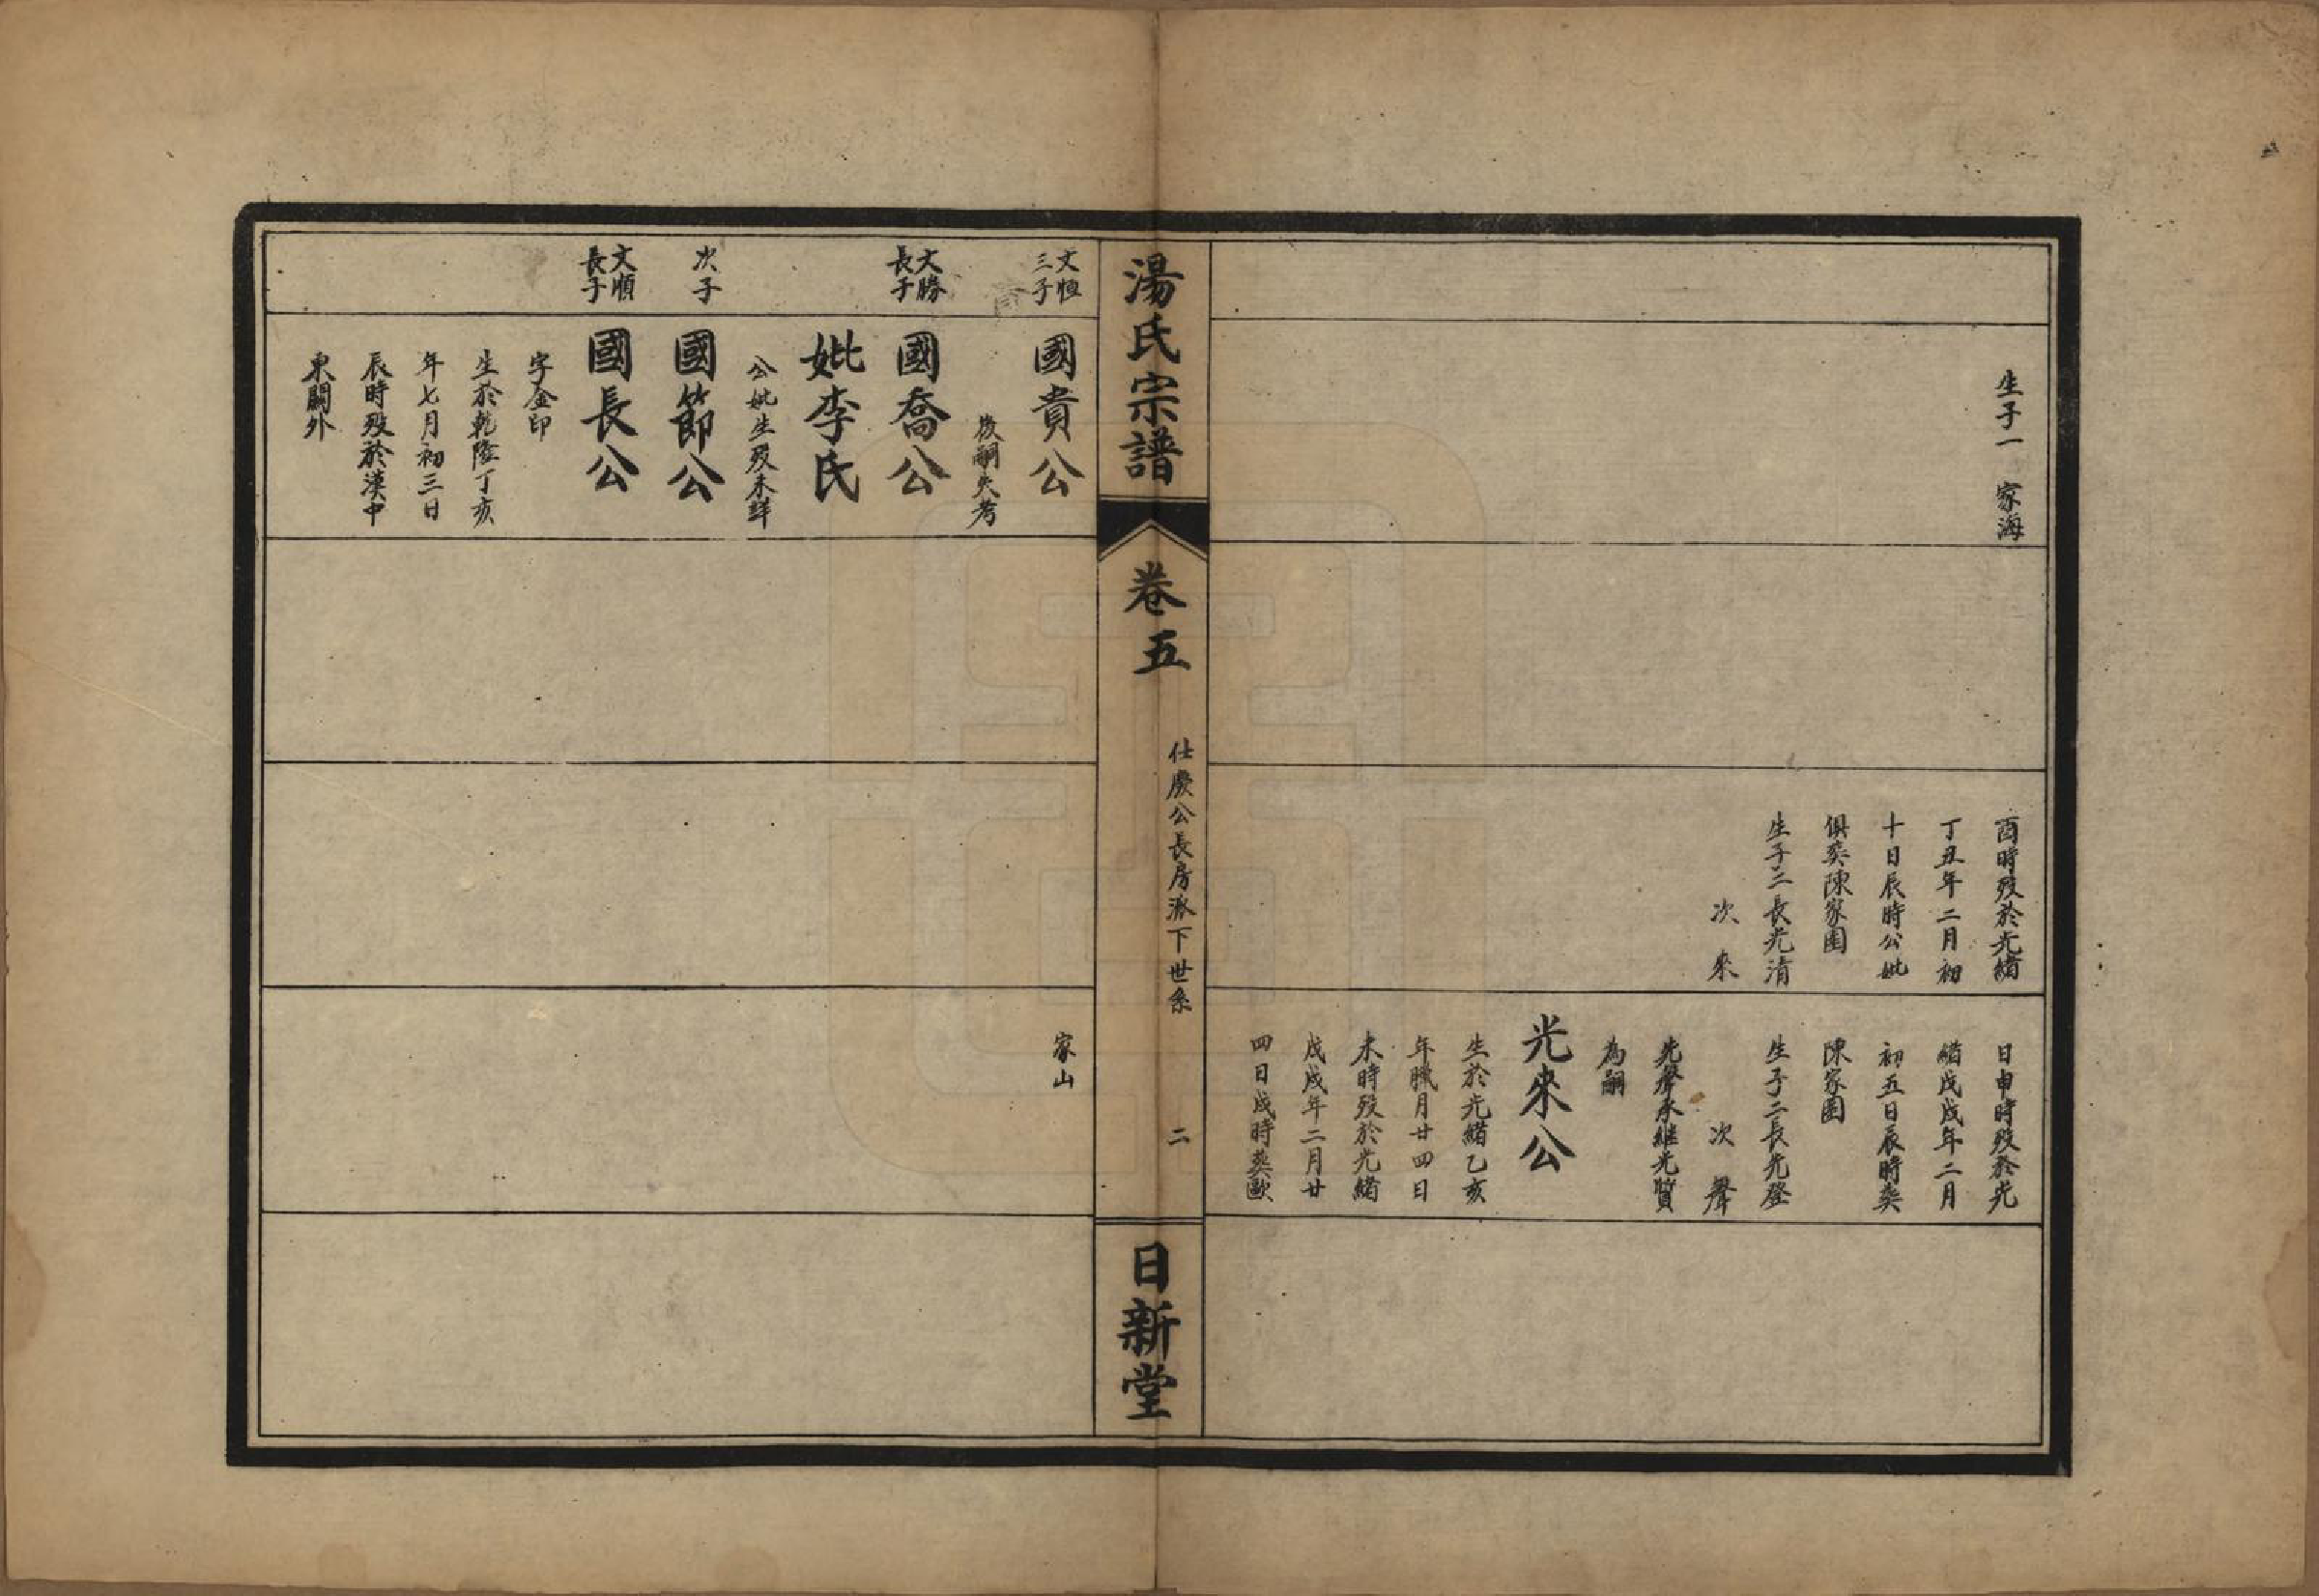 生子一 家海
酉時歿於光緒
丁丑年二月初
十日辰時公妣
俱葬陳家園
生子二長光清
次 來
日申時歿於光
緒戊戌年二月
初五日辰時葬
陳家園
生子二長先登
次 聲
先聲承繼光質
為嗣
光來公
生於光緒乙亥
年臘月廿四日
未時歿於光緒
戊戌年二月廿
四日戌時葬歐
湯氏宗譜
卷五
仕慶公長房派下世系
二
日新堂
文恒
三子
國貴公
後嗣失考
文勝
長子
國喬公
妣李氏
公妣生歿未詳
次子
國節公
文順
長子
國長公
字金印
生於乾隆丁亥
年七月初三日
辰時歿於漢中
東關外
家山